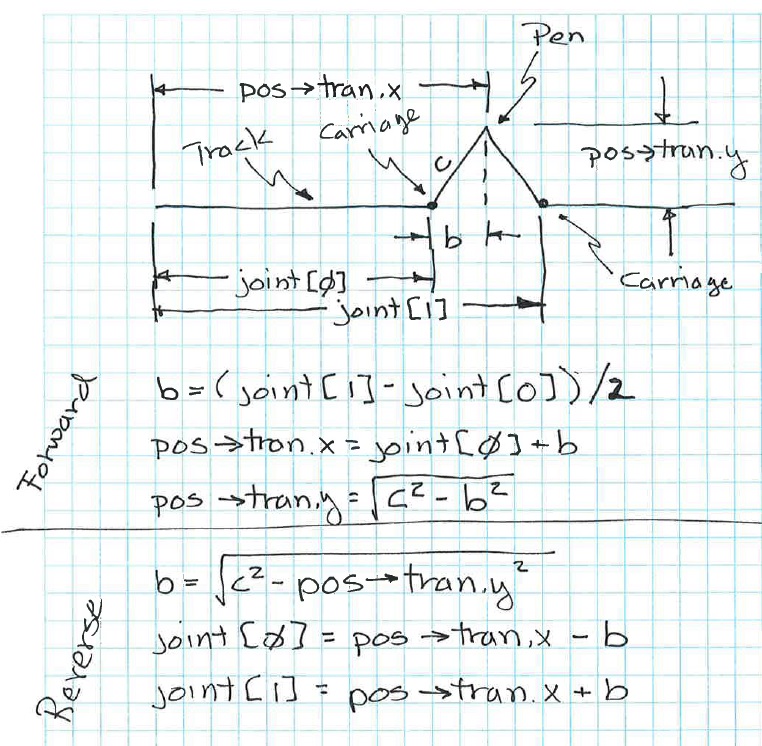 Pen
pos→tran.x
Carriage
Track
c
pos→tran.y
b
joint[φ]
Carriage
joint[1]
Forward
b = (joint[1] - joint[0])/2
pos→tran.x = joint[φ] + b
pos→tran.y = √c² - b²
Reverse
b = √c² - pos→tran.y²
joint[φ] = pos→tran.x - b
joint[1] = pos→tran.x + b